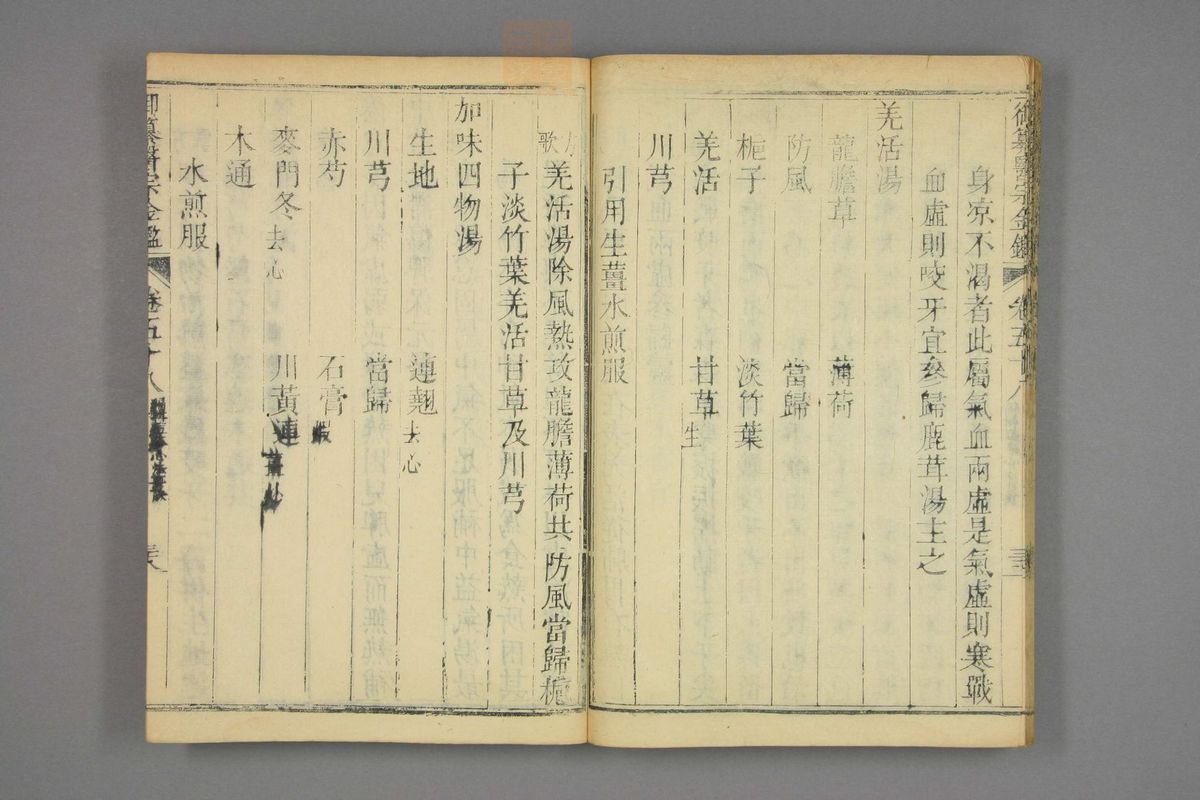 御纂醫宗金鑑 卷五十八
身凉不渴者此屬氣血兩虛是氣虛則寒戰
血虛則咬牙宜參歸鹿茸湯主之
羌活湯
龍膽草 薄荷
防風 當歸
梔子 淡竹葉
羌活 甘草生
川芎
引用生薑水煎服
方歌 羌活湯除風熱攻龍膽薄荷共防風當歸梔
子淡竹葉羌活甘草及川芎
加味四物湯
生地 連翹去心
川芎 當歸
赤芍 石膏煅
麥門冬去心 川黃連薑炒
木通
水煎服
御纂醫宗金鑑 卷五十八